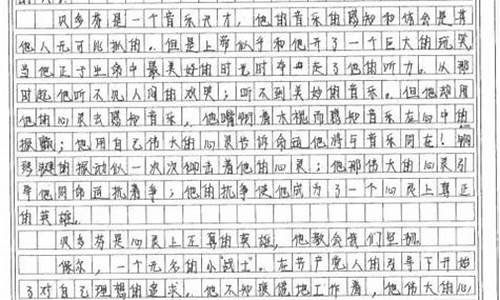 贝多芬是一个音乐天才,他的音乐的感知和体会是其
他人无可比拟的。但是上帝似乎和他开了一个巨大的玩笑
当他正于生命中最美好的时光时夺走了他的听力。从那
时起他听不见人间的欢笑;听不到美妙的音乐。但他却用
他的心灵去感知音乐,他嘴咬着木棍而感知音乐在心中的
振颤;他用自己伟大的心灵告诉命运他将与音乐同在!钢
琴键的振动似一次次叩击着他的心灵;他那伟大的心灵引
导他同命运抗着争;他的抗争使他成为了一个心灵上真正
的英雄。
贝多芬是心灵上正真的英雄,他教会我们坚韧。
保尔,一个无名的小"战士"。在共产党人的引导下开始
了对自己理想的追求。他不知疲倦地工作着,他伟大的心